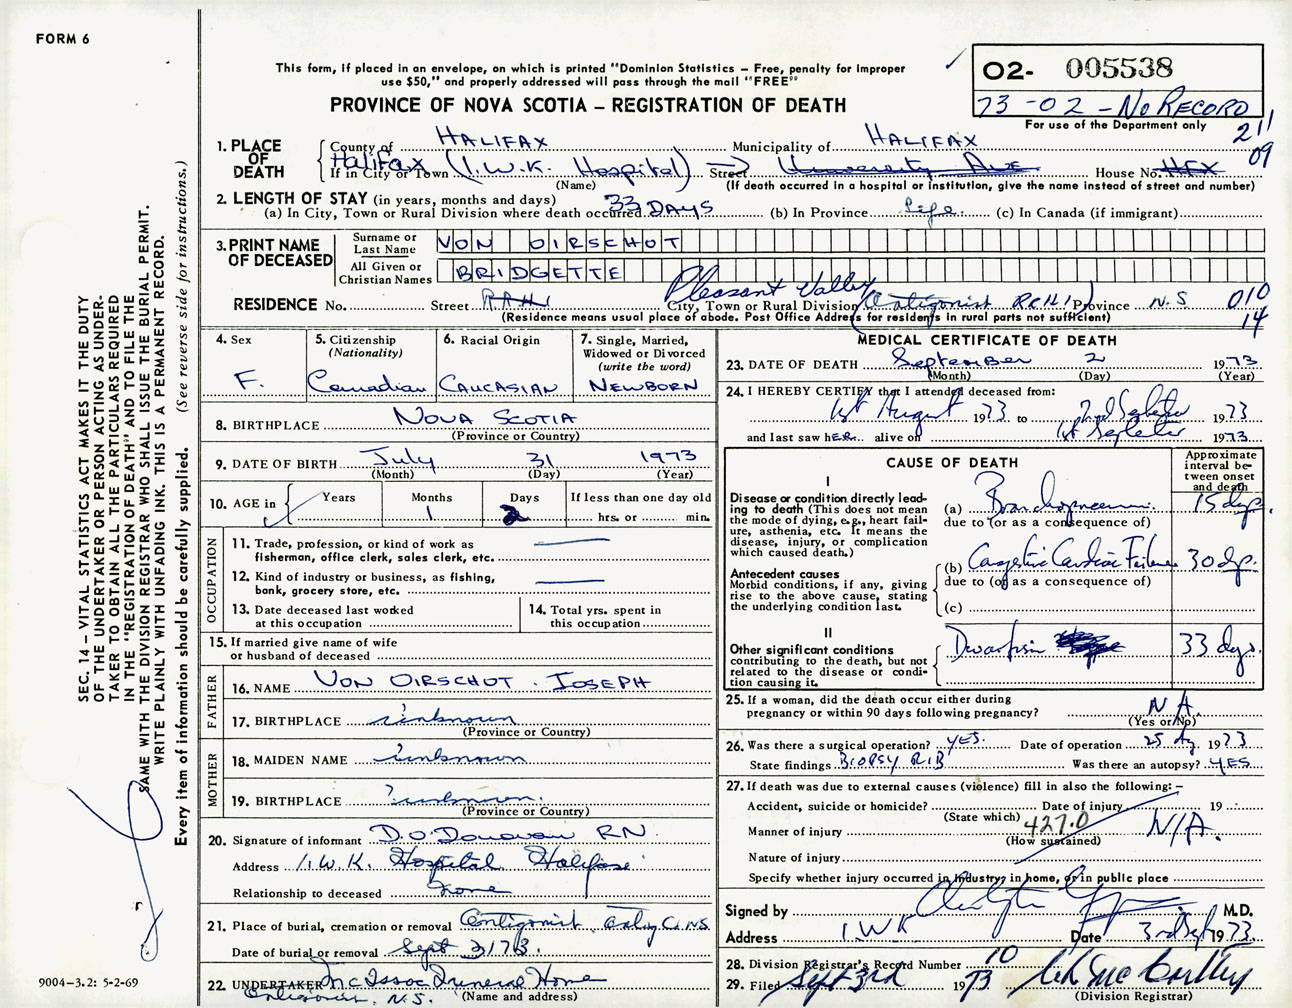 FORM 6
This form, if placed in an envelope, on which is printed "Dominion Statistics – Free, penalty for improper
use $50," and properly addressed will pass through the mail "FREE"
PROVINCE OF NOVA SCOTIA – REGISTRATION OF DEATH
O2- 005538
73-02-NO RECORD
For use of the Department only
211
09
1. PLACE OF DEATH
County of HALIFAX Municipality of HALIFAX
If in City or Town Halifax (I.W.K. Hospital) Street University Ave House No. HFX
(Name) (If death occurred in a hospital or institution, give the name instead of street and number)
2. LENGTH OF STAY (in years, months and days)
(a) In City, Town or Rural Division where death occurred 33 DAYS (b) In Province Life (c) In Canada (if immigrant)
3. PRINT NAME OF DECEASED
Surname or Last Name VON OIRSCHOT
All Given or Christian Names BRIDGETTE
Pleasant Valley
RESIDENCE No. Street R.R.#1 City, Town or Rural Division (Antigonish RR#1) Province N.S. 010
(Residence means usual place of abode. Post Office Address for residents in rural parts not sufficient) 14
4. Sex F.
5. Citizenship (Nationality) Canadian
6. Racial Origin CAUCASIAN
7. Single, Married, Widowed or Divorced (write the word) NEWBORN
8. BIRTHPLACE NOVA SCOTIA
(Province or Country)
9. DATE OF BIRTH July 31 1973
(Month) (Day) (Year)
10. AGE in Years Months 1 Days 2 If less than one day old hrs. or min.
OCCUPATION
11. Trade, profession, or kind of work as
fisherman, office clerk, sales clerk, etc.
12. Kind of industry or business, as fishing,
bank, grocery store, etc.
13. Date deceased last worked
at this occupation
14. Total yrs. spent in
this occupation
15. If married give name of wife
or husband of deceased
FATHER
16. NAME VON OIRSCHOT. JOSEPH
17. BIRTHPLACE unknown
(Province or Country)
MOTHER
18. MAIDEN NAME unknown
19. BIRTHPLACE unknown.
(Province or Country)
20. Signature of informant D. O'Donovan RN.
Address I.W.K. Hospital Halifax
Relationship to deceased none
21. Place of burial, cremation or removal Antigonish N.S.
Date of burial or removal Sept 3/73.
22. UNDERTAKER McIsaac Funeral Home
Antigonish, N.S. (Name and address)
MEDICAL CERTIFICATE OF DEATH
23. DATE OF DEATH September 2 1973
(Month) (Day) (Year)
24. I HEREBY CERTIFY that I attended deceased from:
1st August 1973 to 2nd September 1973
and last saw HER alive on 1st September 1973
CAUSE OF DEATH
Approximate interval between onset and death
I
Disease or condition directly leading
to death (This does not mean
the mode of dying, e.g., heart failure,
asthenia, etc. It means the
disease, injury, or complication
which caused death.)
(a) Bronchopneumonia 15 dys.
due to (or as a consequence of)
Antecedent causes
Morbid conditions, if any, giving
rise to the above cause, stating
the underlying condition last.
(b) Congestive Cardiac Failure 30 dys.
due to (or as a consequence of)
(c)
II
Other significant conditions
contributing to the death, but not
related to the disease or condition
causing it.
Dwarfism 33 dys.
25. If a woman, did the death occur either during
pregnancy or within 90 days following pregnancy? N A.
(Yes or No)
26. Was there a surgical operation? YES. Date of operation 25 Aug 1973
State findings BIOPSY RIB Was there an autopsy? YES
27. If death was due to external causes (violence) fill in also the following:–
Accident, suicide or homicide? Date of injury 19
(State which)
Manner of injury 427.0 N/A.
(How sustained)
Nature of injury
Specify whether injury occurred in industry, in home, or in public place
Signed by M.D.
Address I.W.K Date 3rd Sept 1973.
28. Division Registrar's Record Number 10
29. Filed Sept 3rd 1973
(Division Registrar)
SEC. 14 – VITAL STATISTICS ACT MAKES IT THE DUTY
OF THE UNDERTAKER OR PERSON ACTING AS UNDERTAKER
TO OBTAIN ALL THE PARTICULARS REQUIRED
IN THE "REGISTRATION OF DEATH" AND TO FILE THE
SAME WITH THE DIVISION REGISTRAR WHO SHALL ISSUE THE BURIAL PERMIT.
WRITE PLAINLY WITH UNFADING INK. THIS IS A PERMANENT RECORD.
Every item of information should be carefully supplied. (See reverse side for instructions.)
9004-3.2: 5-2-69